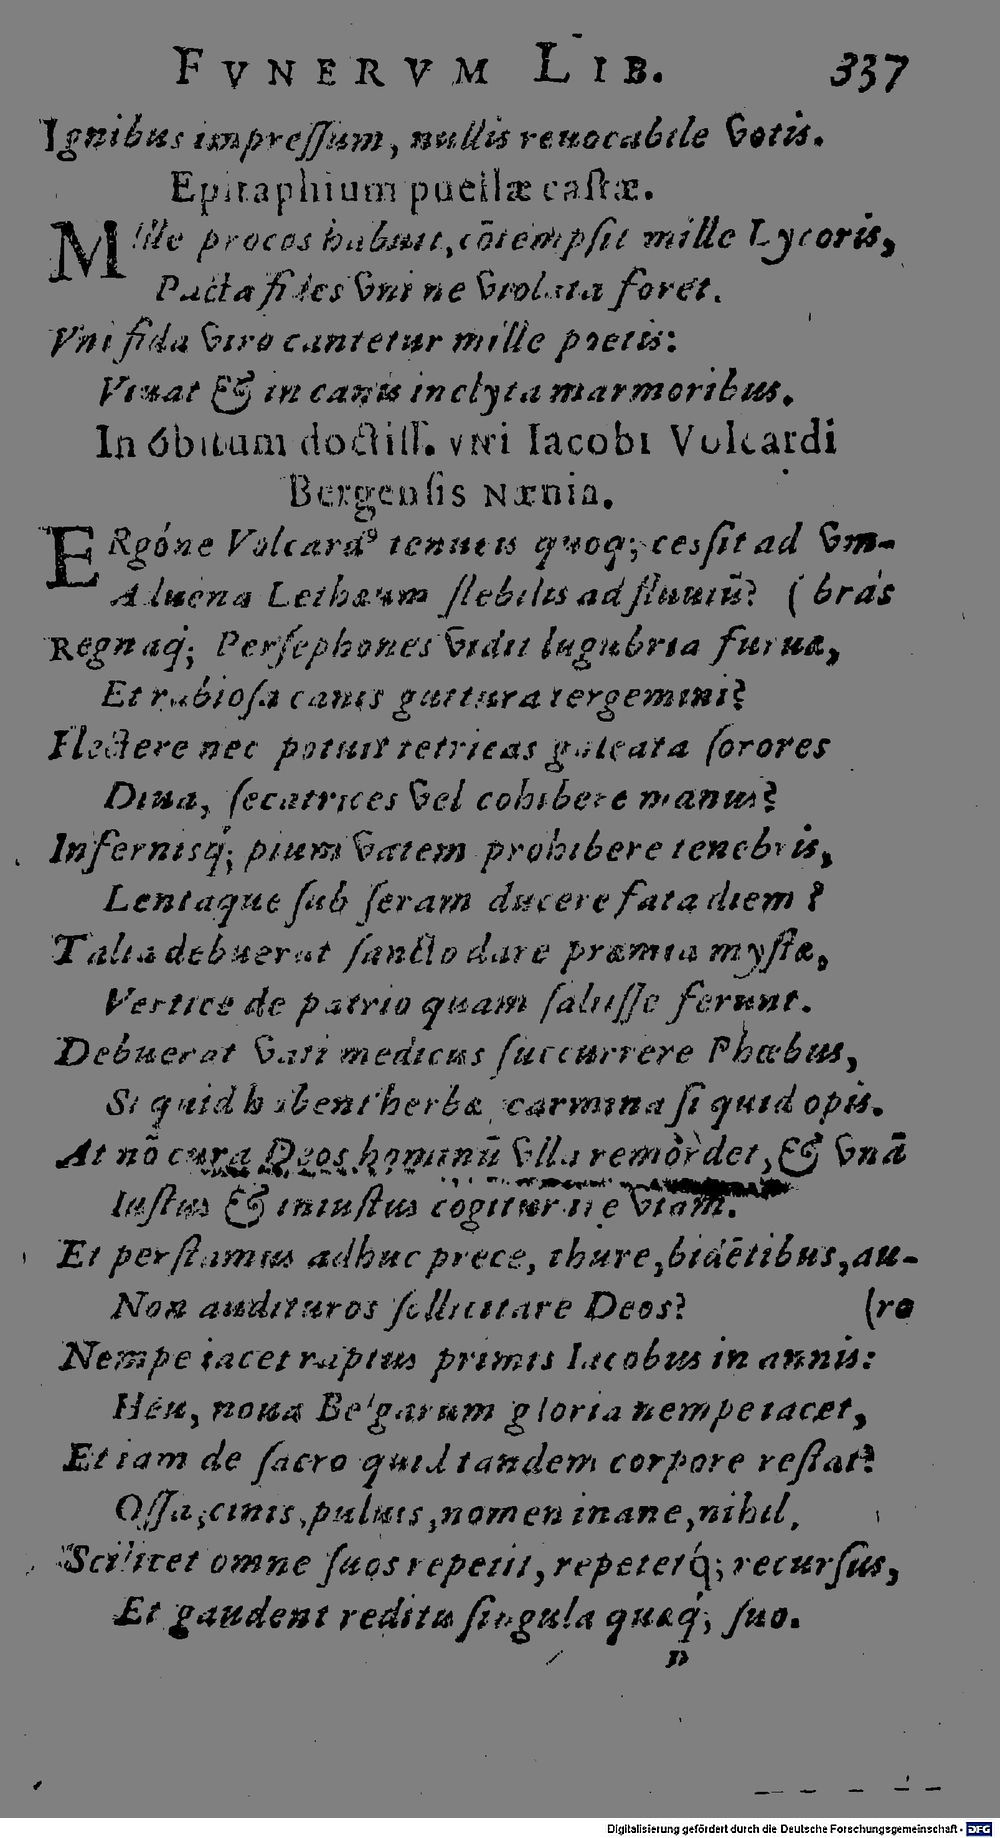 FVNERVM LIB. 337
Ignibus impreſſum, nullis reuocabile votis.
Epitaphium puellæ caſtæ.
Mille procos habuit, cōtempſit mille Lycoris,
Pacta fides vni ne violata foret.
Vni fida viro cantetur mille poetis:
Viuat & in canis inclyta marmoribus.
In óbitum doctiſſ. viri Iacobi Volcardi
Bergenſis Nænia.
ERgóne Volcardꝰ tenueis quoq; cesſit ad vm-
Aduena Lethæum flebilis ad fluuiū? (brás
Regnaq́; Perſephones vidit lugubria furuæ,
Et rabioſa canis guttura tergemini?
Flectere nec potuit tetricas galeata ſorores
Diua, ſecatrices vel cohibere manus?
Infernisq́; pium vatem prohibere tenebris,
Lentaque ſub ſeram ducere fata diem?
Talia debuerat ſancto dare præmia myſtæ,
Vertice de patrio quam ſaluiſſe ferunt.
Debuerat vati medicus ſuccurrere Phœbus,
Si quid habent herbæ carmina ſi quid opis.
At nō cura Deos hominū vlla remòrdet, & vnā
Iuſtus & iniuſtus cogitur ire viam.
Et perſtamus adhuc prece, thure, bidētibus, au-
Non audituros ſollicitare Deos? (ro
Nempe iacet raptus primis Iacobus in annis:
Heu, noua Belgarum gloria nempe iacet,
Et iam de ſacro quid tandem corpore reſtat?
Oſſa, cinis, puluis, nomen inane, nihil.
Scilicet omne ſuos repetit, repetetq́; recurſus,
Et gaudent reditu ſingula quæq́; ſuo.
Digitalisierung gefördert durch die Deutsche Forschungsgemeinschaft - DFG